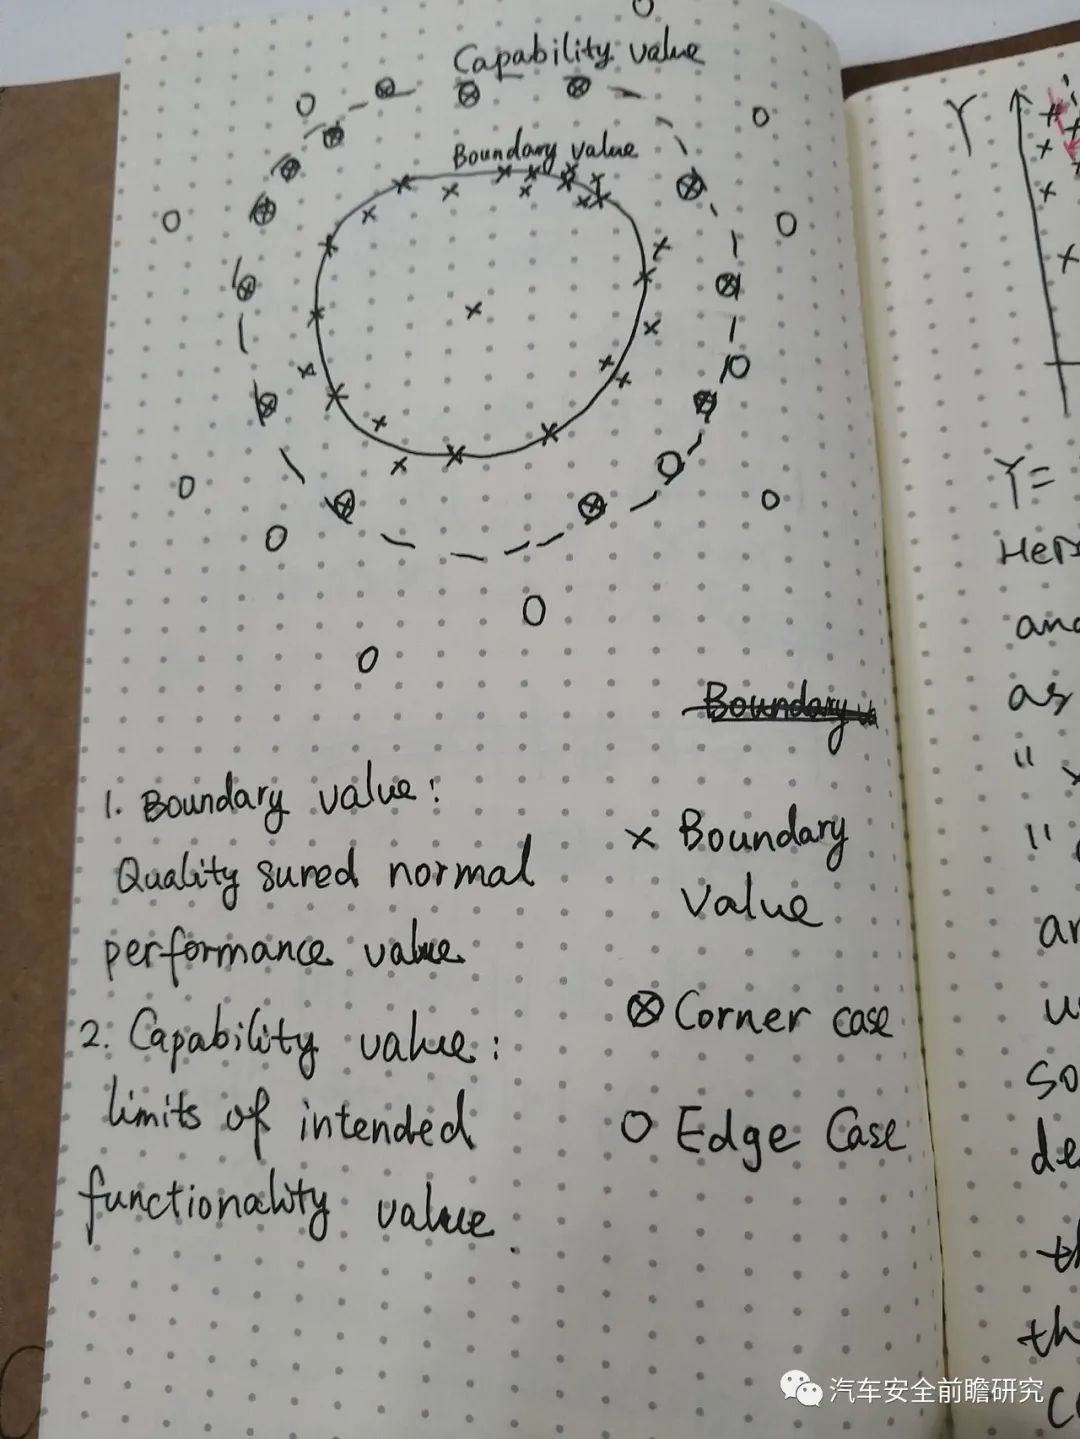 Capability value
Boundary value
Boundary va
1. Boundary value:
Quality sured normal
performance value
2. Capability value:
limits of intended
functionality value.
× Boundary
Value
⊗ Corner case
O Edge Case
Y
Y=
Here
and
as
"
"
so
de
th
th
汽车安全前瞻研究